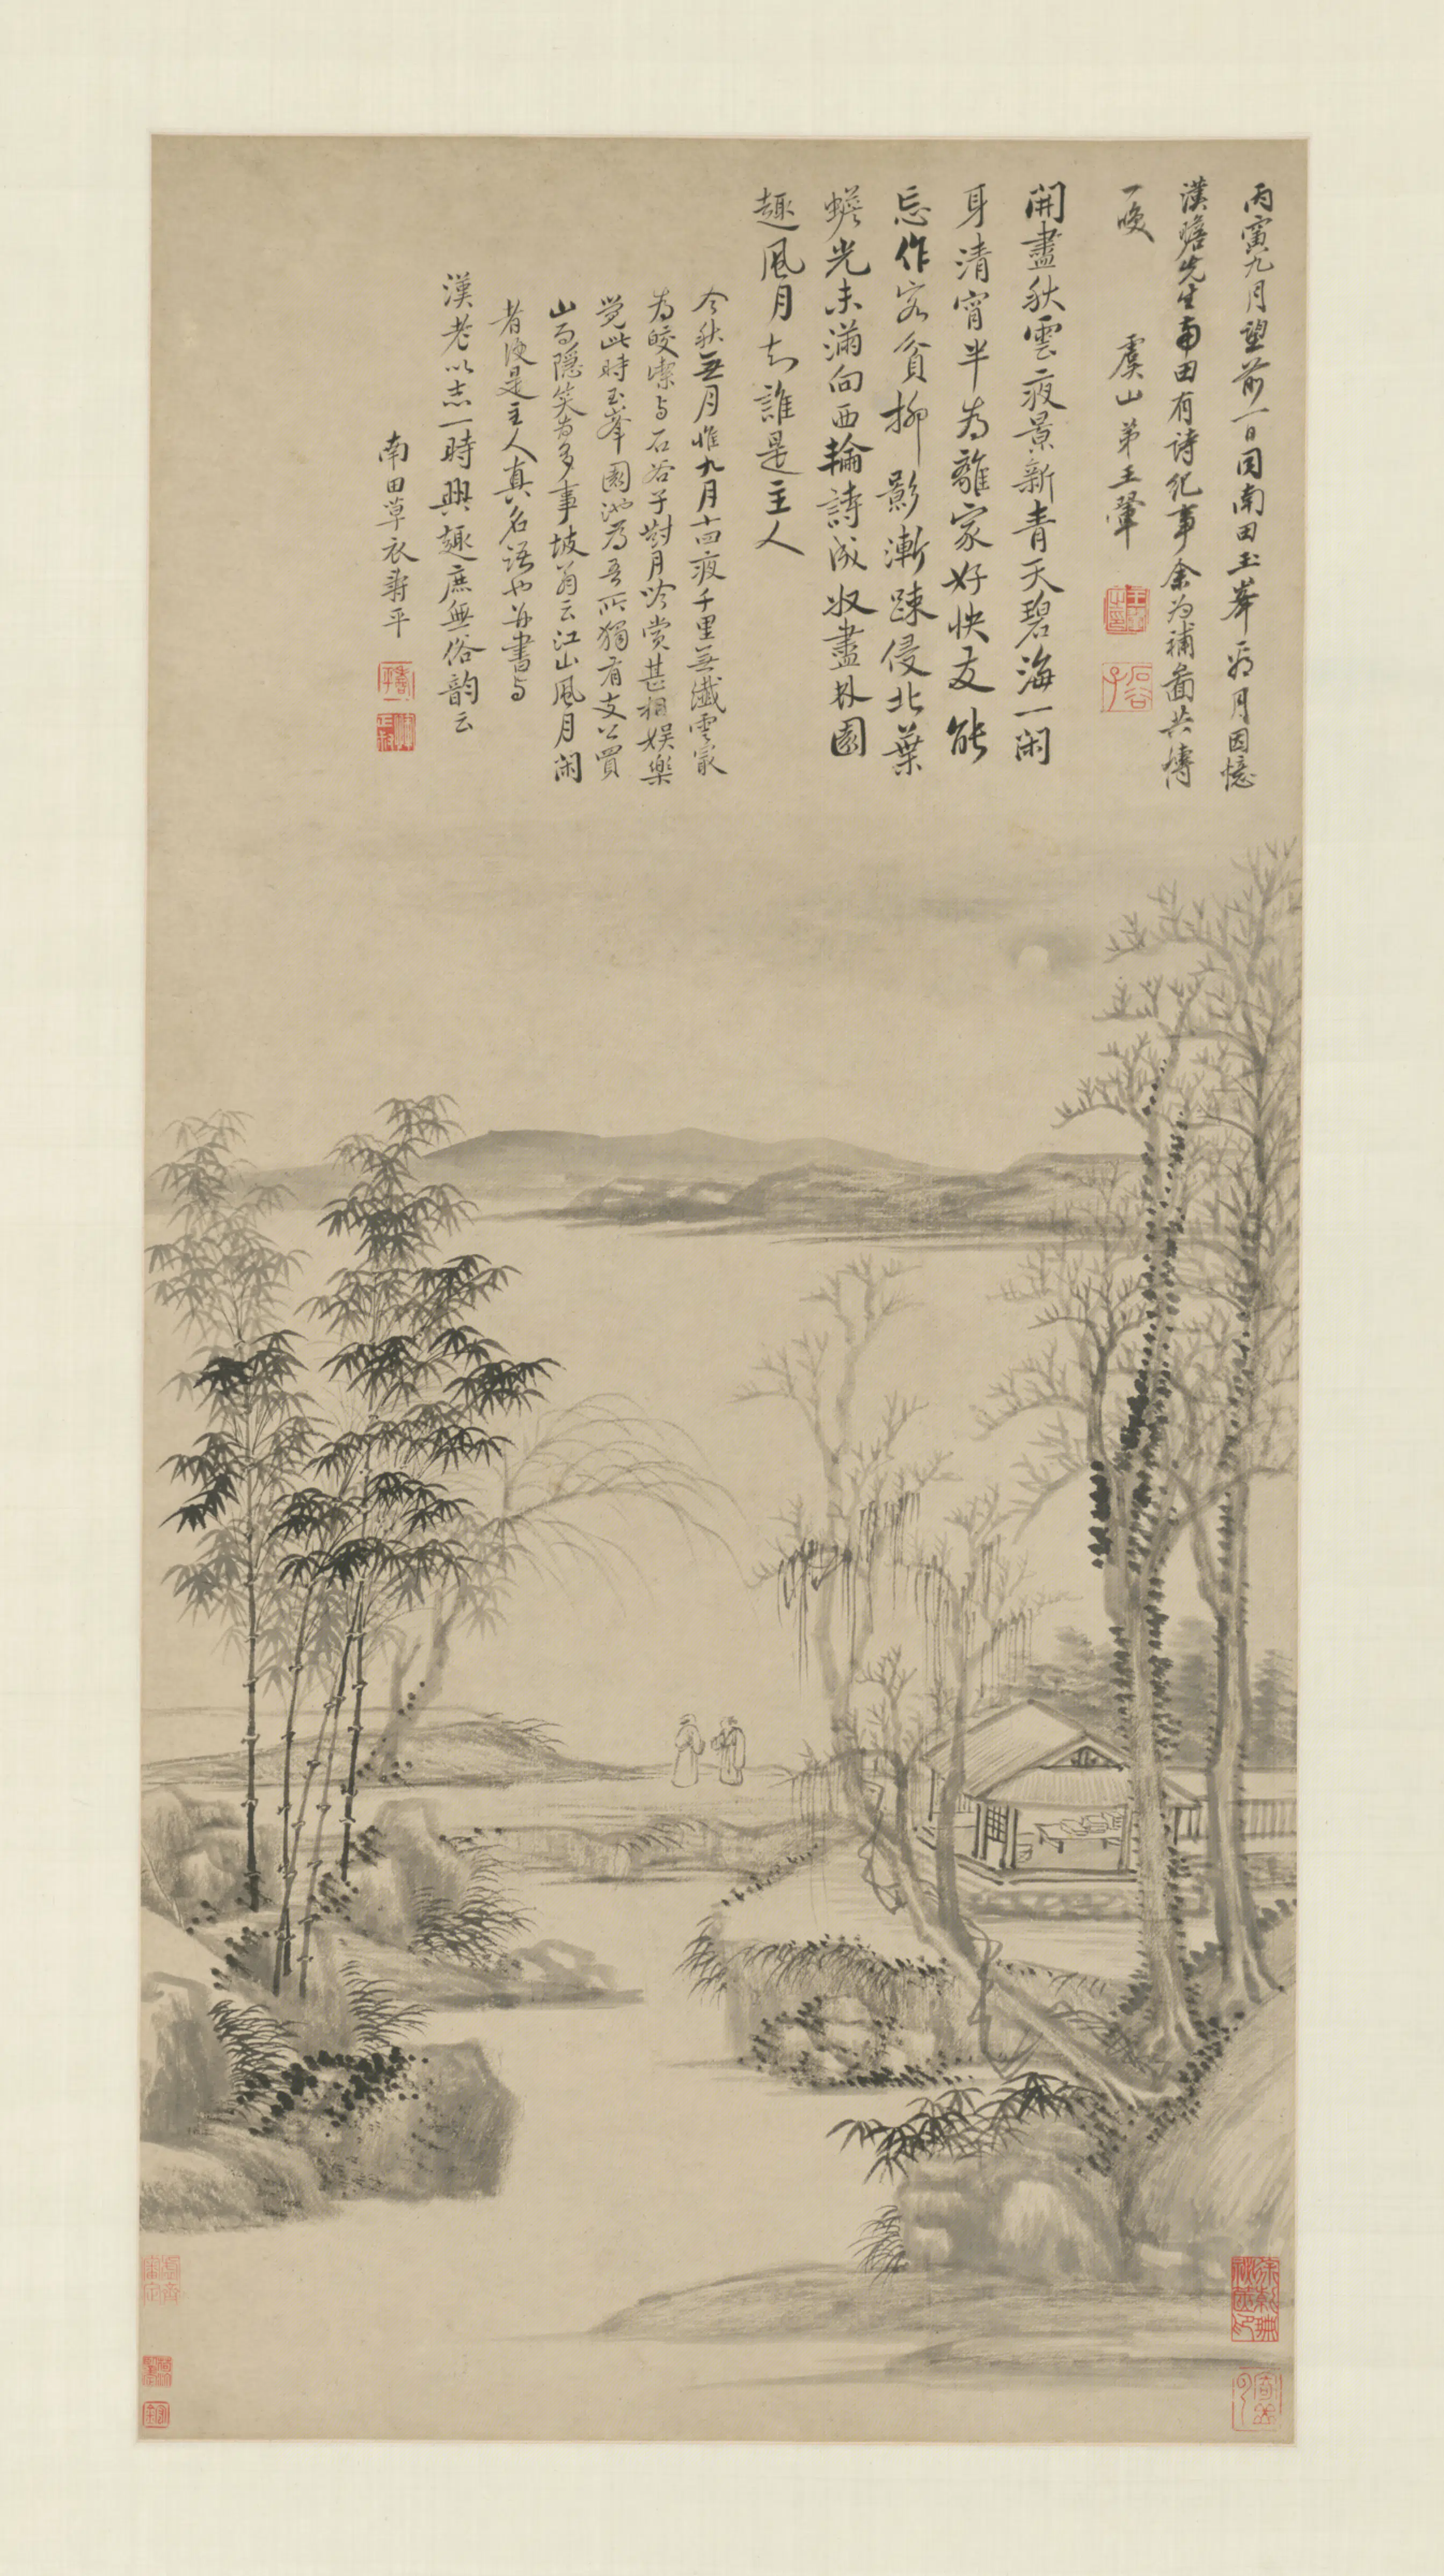 丙寅九月望前一日同南田玉峯翫月因憶
漢瞻先生南田有詩纪事余为補啚共博
一噱
虞山弟王翬
開盡秋雲夜景新青天碧海一闲
身清宵半为離家好快友能
忘作客貧柳影漸踈侵北葉
蟾光未滿向西輪詩成収盡林園
趣風月知誰是主人
今秋無月惟九月十四夜千里無纖雲最
为皎潔与石谷子對月吟賞甚相娱樂
覺此時玉峯園池为吾所獨有支公買
山而隱笑为多事坡翁云江山風月闲
者便是主人真名语也并書与
漢老以志一時興趣庶無俗韵云
南田草衣壽平
石谷子
壽平